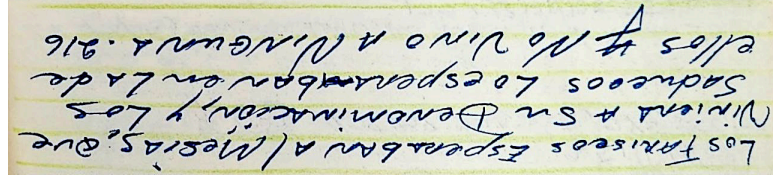 Los Fariseos Esperaban al Mesías, que
Viniera a Su Denominación, y Los
Saduceos Lo esperaban en La de
ellos y No Vino A Ninguna. 216